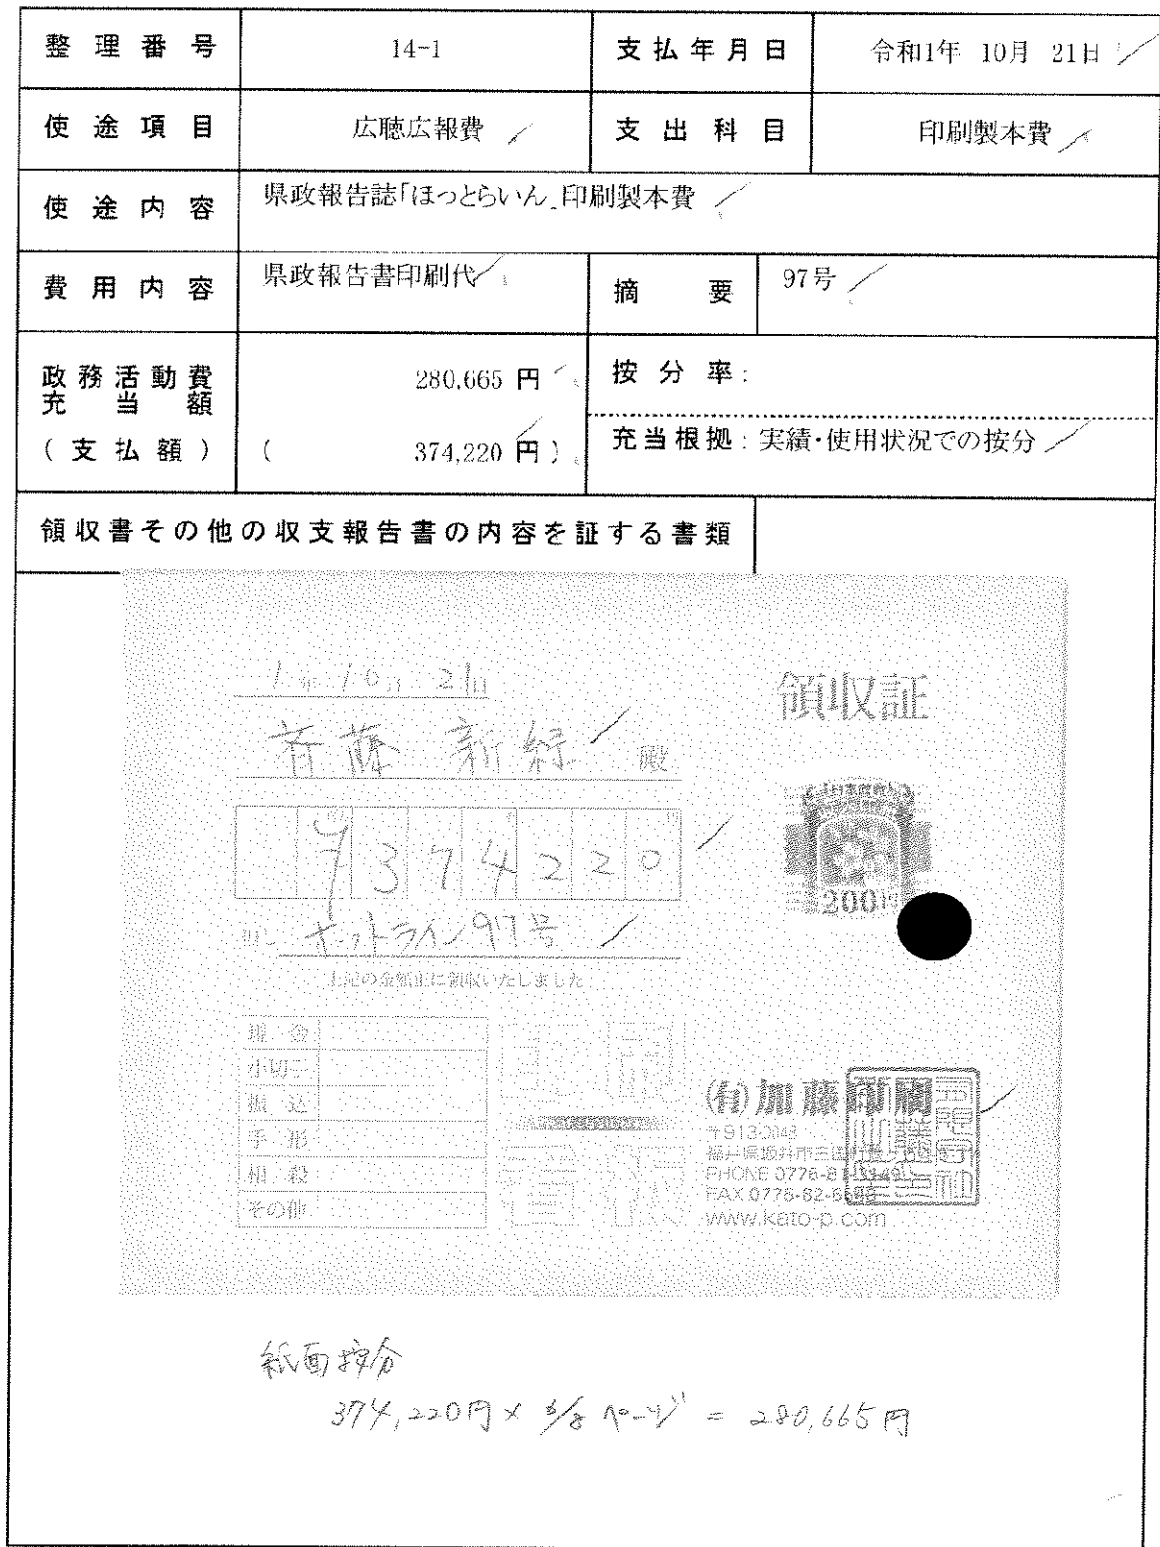 整理番号 14-1 支払年月日 令和1年 10月 21日
使途項目 広聴広報費 支出科目 印刷製本費
使途内容 県政報告誌「ほっとらいん」印刷製本費
費用内容 県政報告書印刷代 摘要 97号
政務活動費充当額 280,665 円 按分率:
(支払額) ( 374,220 円) 充当根拠:実績・使用状況での按分
領収書その他の収支報告書の内容を証する書類
1年 10月 21日
領収証
斉藤 新緑 殿
¥374220
200
但し ホットライン97号
上記の金額正に領収いたしました
現金
小切手
振込
手形
相殺
その他
(有)加藤印刷
〒913-0048
福井県坂井市三国町
PHONE 0776-8
FAX 0776-82-
www.kato-p.com
紙面按分
374,220円 × 6/8 ページ = 280,665円